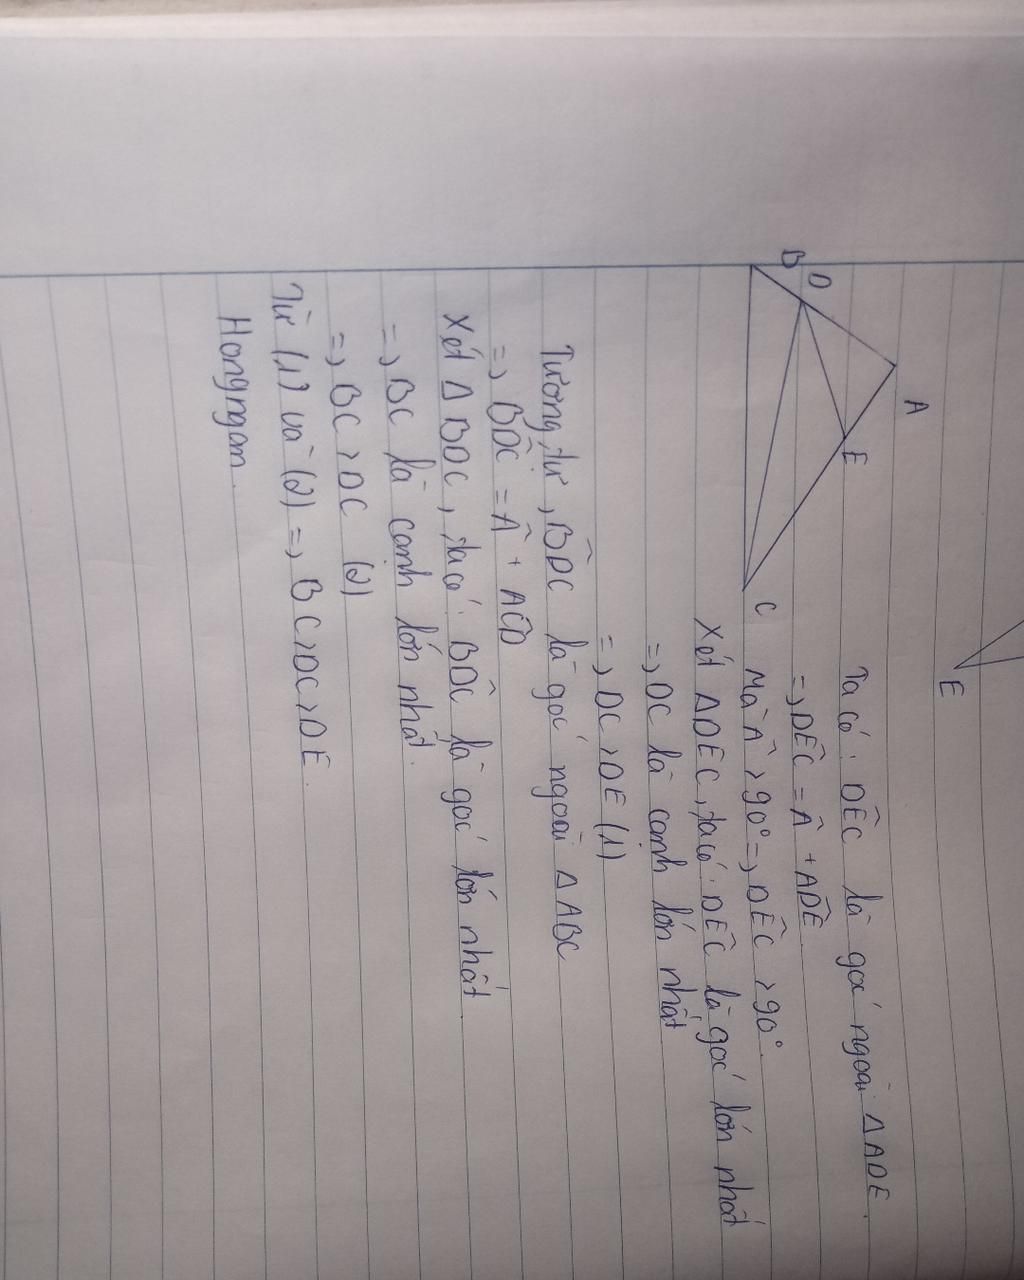 E
A
B
D
E
C
Ta có: DÊC là góc ngoài ΔADE.
=> DÊC = Â + ADÊ
Mà Â > 90° => DÊC > 90°.
Xét ΔDEC, ta có: DÊC là góc lớn nhất
=> DC là cạnh lớn nhất
=> DC > DE (1)
Tương tự, BD̂C là góc ngoài ΔABC
=> BD̂C = Â + AĈD
Xét ΔBDC, ta có: BD̂C là góc lớn nhất
=> BC là cạnh lớn nhất.
=> BC > DC (2)
Từ (1) và (2) => BC > DC > DE.
Hongngam.